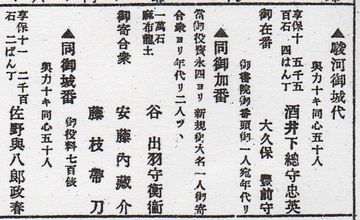 ▲駿河御城代
與力十キ同心五十人
享保十 五千五百石 四はん丁
酒井下總守忠英
御在番
大久保豊前守
御書院御番頭御一人宛年代り
▲同御加番
當御役寳永四ヨリ新規御大名一人御寄合衆ヨリ年代り二人ヅヽ
一万石 麻布龍土
谷出羽守衛衝
御寄合衆
安藤内藏介
藤枝帶刀
▲同御城番
御役料七百俵
與力十キ同心五十人
享保十一 二千百石 二ばん丁
佐野與八郎政春